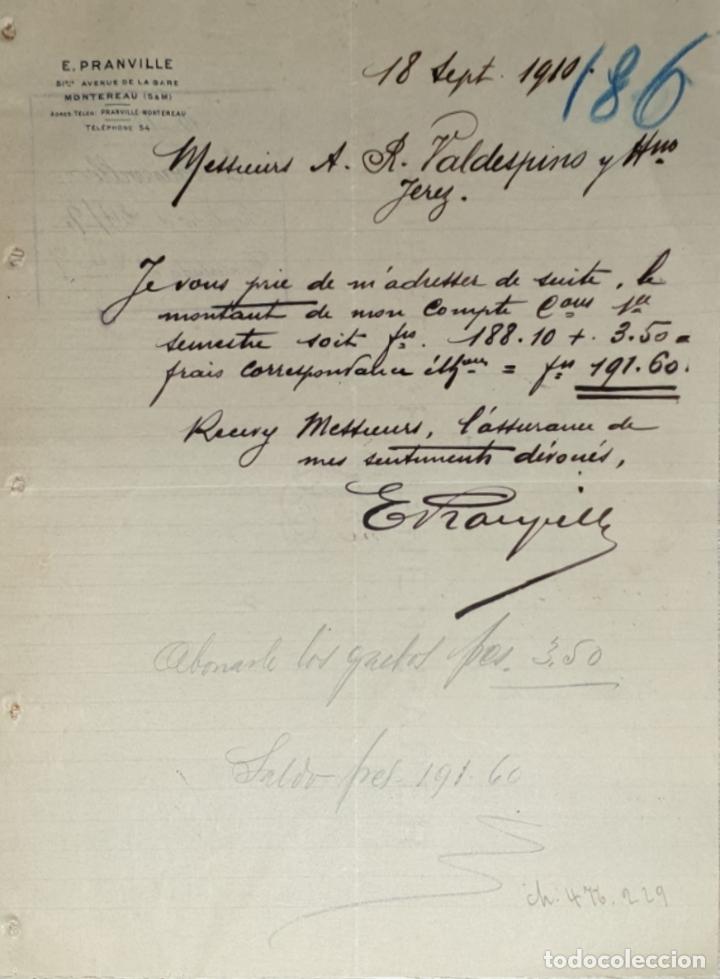 E. PRANVILLE
51bis AVENUE DE LA GARE
MONTEREAU (S&M)
ADRES. TÉLÉG: PRANVILLE-MONTEREAU
TÉLÉPHONE 54
18 Sept. 1910.
186
Messieurs A. R. Valdespino y Hno
Jerez.
Je vous prie de m'adresser de suite, le
montant de mon Compte 1er
semestre soit frs. 188.10 + 3.50 =
frais correspondance = frs 191.60.
Recevez Messieurs, l'assurance de
mes sentiments dévoués,
E Pranville
Abonarle los gastos pes. 3,50
Saldo pes 191.60
ch. 476.229
todocoleccion